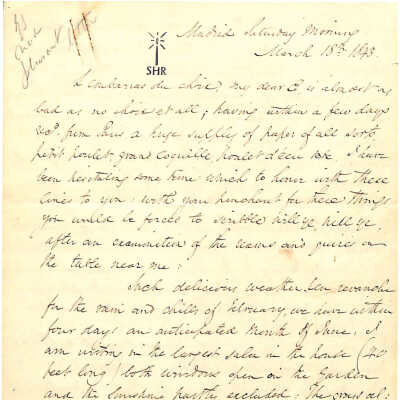 SHR
Madrid Saturday Morning
March 18th 1843.
L'embarras du choix, my dear is almost as
bad as no choice at all; having within a few days
recd. from Paris a huge supply of paper of all sorts
petit poulet, grand coquille, poulet d'écu &c. I have
been hesitating some time which to honor with these
lines to you: with your penchant for these things
you would be forced to scribble will ye, nill ye,
after an examination of the reams and quires on
the table near me:
Such delicious weather! en revanche
for the rain and chills of February, we have within
four days an anticipated month of June; I
am writing in the largest salon in the house
feet long) both windows open on the Garden
and the Sunshine excluded. The